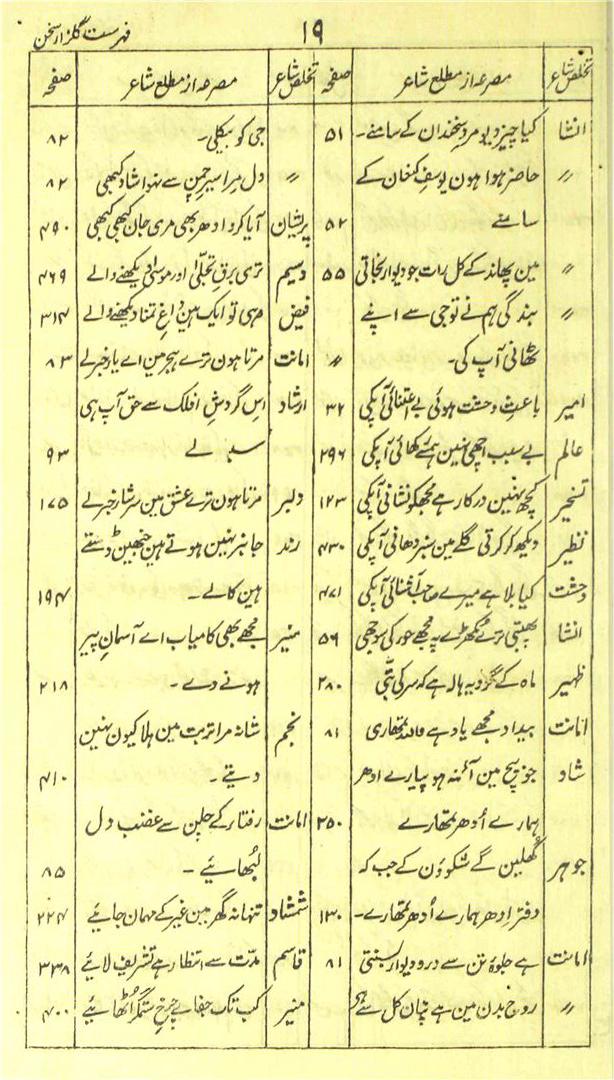 ۱۹
فہرست گلزار سخن
تخلص شاعر | مصرعہ از مطلع شاعر | صفحہ
انشا | کیا چیز دیو مرد سخندان کے سامنے۔ | ۵۱
〃 | حاضر ہوا ہون یوسفِ کنعان کے
سامنے | ۵۲
〃 | مین پھاند کے کل رات جو دیوار لجاتی | ۵۵
〃 | بندگی ہم نے تو جی سے اپنے
ٹھانی آپ کی۔ | 〃
امیر | باعثِ وحشت ہوئی بے اعتنائی آپکی | ۳۲
عالم | بے سبب اچھی نہین کھائی آپکی | ۲۹۶
تسخیر | کچھ نہین درکار ہے مجھکو نشانی آپکی | ۱۲۳
نظیر | دیکھ کر کرتی گلے مین سبز دھانی آپکی | ۴۳۰
وحشت | کیا بلا ہے میرے صاحب آشنائی آپکی | ۴۷۱
انشا | پھبتی ترے مکھڑے پہ مجھے حور کی سوجھی | ۵۶
ظہیر | ماہ کے گرد یہ ہالہ ہے کہ سر کی پٹی | ۲۸۰
امانت | بیداد مجھے یاد ہے واللہ تمھاری | ۸۱
شاد | جو بیچ مین آئنہ ہو پیارے ادھر
ہمارے اُدھر تمھارے | ۲۵۰
جوہر | کُھلین گے شکوؤن کے جب کہ
دفتر اِدھر ہمارے اُدھر تمھارے۔ | ۱۳۰
امانت | ہے جلوۂ تن سے در و دیوار بسنتی | ۸۱
〃 | روح بدن مین ہے تپان کل سے ہے
تخلص شاعر | مصرعہ از مطلع شاعر | صفحہ
جی کو بیکلی۔ | ۸۲
〃 | دل مرا سیرِ چمن سے نہوا شاد کبھی | ۸۲
پریشان | آیا کرو ادھر بھی مری جان کبھی کبھی | ۴۹۰
وسیم | تری برقِ تجلّی اور موسیٰ دیکھنے والے | ۴۶۹
فیض | مری تو ایک ہین داغِ تمنا دیکھنے والے | ۳۱۴
امانت | مرتا ہون ترے ہجر مین اے یار خبر لے | ۸۳
ارشاد | اس گردشِ افلک سے حق آپ ہی
سنبالے | ۹۳
دلبر | مرتا ہون ترے عشق مین سرشار خبر لے | ۱۷۵
رند | جانبر نہین ہوتے ہین جنھین ڈستے
ہین کالے۔ | ۱۹۴
منیر | مجھے بھی کامیاب اے آسمانِ پیر
ہونے دے۔ | ۲۱۸
نجم | شانہ مرا تربت مین ہلا کیون نہین
دیتے۔ | ۴۱۰
امانت | رفتار کے چلن سے عضب دل
لبھائیے۔ | ۸۵
شمشاد | تنہا نہ گھر مین غیر کے مہمان جائیے | ۲۲۴
قاسم | مدّت سے انتظار ہے تشریف لائیے | ۳۳۸
منیر | کب تک جفائے چرخِ ستمگر اُٹھائیے | ۴۰۰